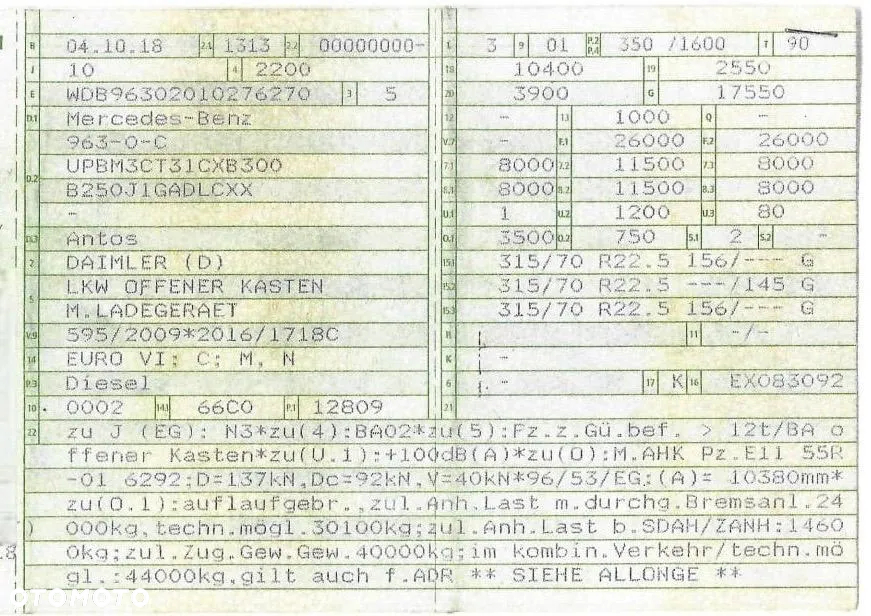 B 04.10.18 2.1 1313 2.2 00000000-
J 10 4 2200
E WDB96302010276270 3 5
D.1 Mercedes-Benz
963-0-C
D.2 UPBM3CT31CXB300
B250J1GADLCXX
-
D.3 Antos
2 DAIMLER (D)
LKW OFFENER KASTEN
5 M.LADEGERAET
V.9 595/2009*2016/1718C
14 EURO VI; C; M, N
P.3 Diesel
10 0002 14.1 66C0 P.1 12809
L 3 9 01 P.2 P.4 350 /1600 T 90
18 10400 19 2550
20 3900 G 17550
12 - 13 1000 Q -
V.7 - F.1 26000 F.2 26000
7.1 8000 7.2 11500 7.3 8000
8.1 8000 8.2 11500 8.3 8000
U.1 1 U.2 1200 U.3 80
O.1 3500 O.2 750 S.1 2 S.2 -
15.1 315/70 R22.5 156/--- G
15.2 315/70 R22.5 ---/145 G
15.3 315/70 R22.5 156/--- G
R 11 -/-
K -
6 - 17 K 16 EX083092
21
22 zu J (EG): N3*zu(4):BA02*zu(5):Fz.z.Gü.bef. > 12t/BA o
ffener Kasten*zu(U.1):+100dB(A)*zu(O):M.AHK Pz.E11 55R
-01 6292;D=137kN,Dc=92kN,V=40kN*96/53/EG;(A)= 10380mm*
zu(O.1):auflaufgebr.,zul.Anh.Last m.durchg.Bremsanl.24
) 000kg,techn.mögl.30100kg;zul.Anh.Last b.SDAH/ZANH:1460
0kg;zul.Zug.Gew.Gew.40000kg;im kombin.Verkehr/techn.mö
gl.:44000kg,gilt auch f.ADR ** SIEHE ALLONGE **
OTOMOTO